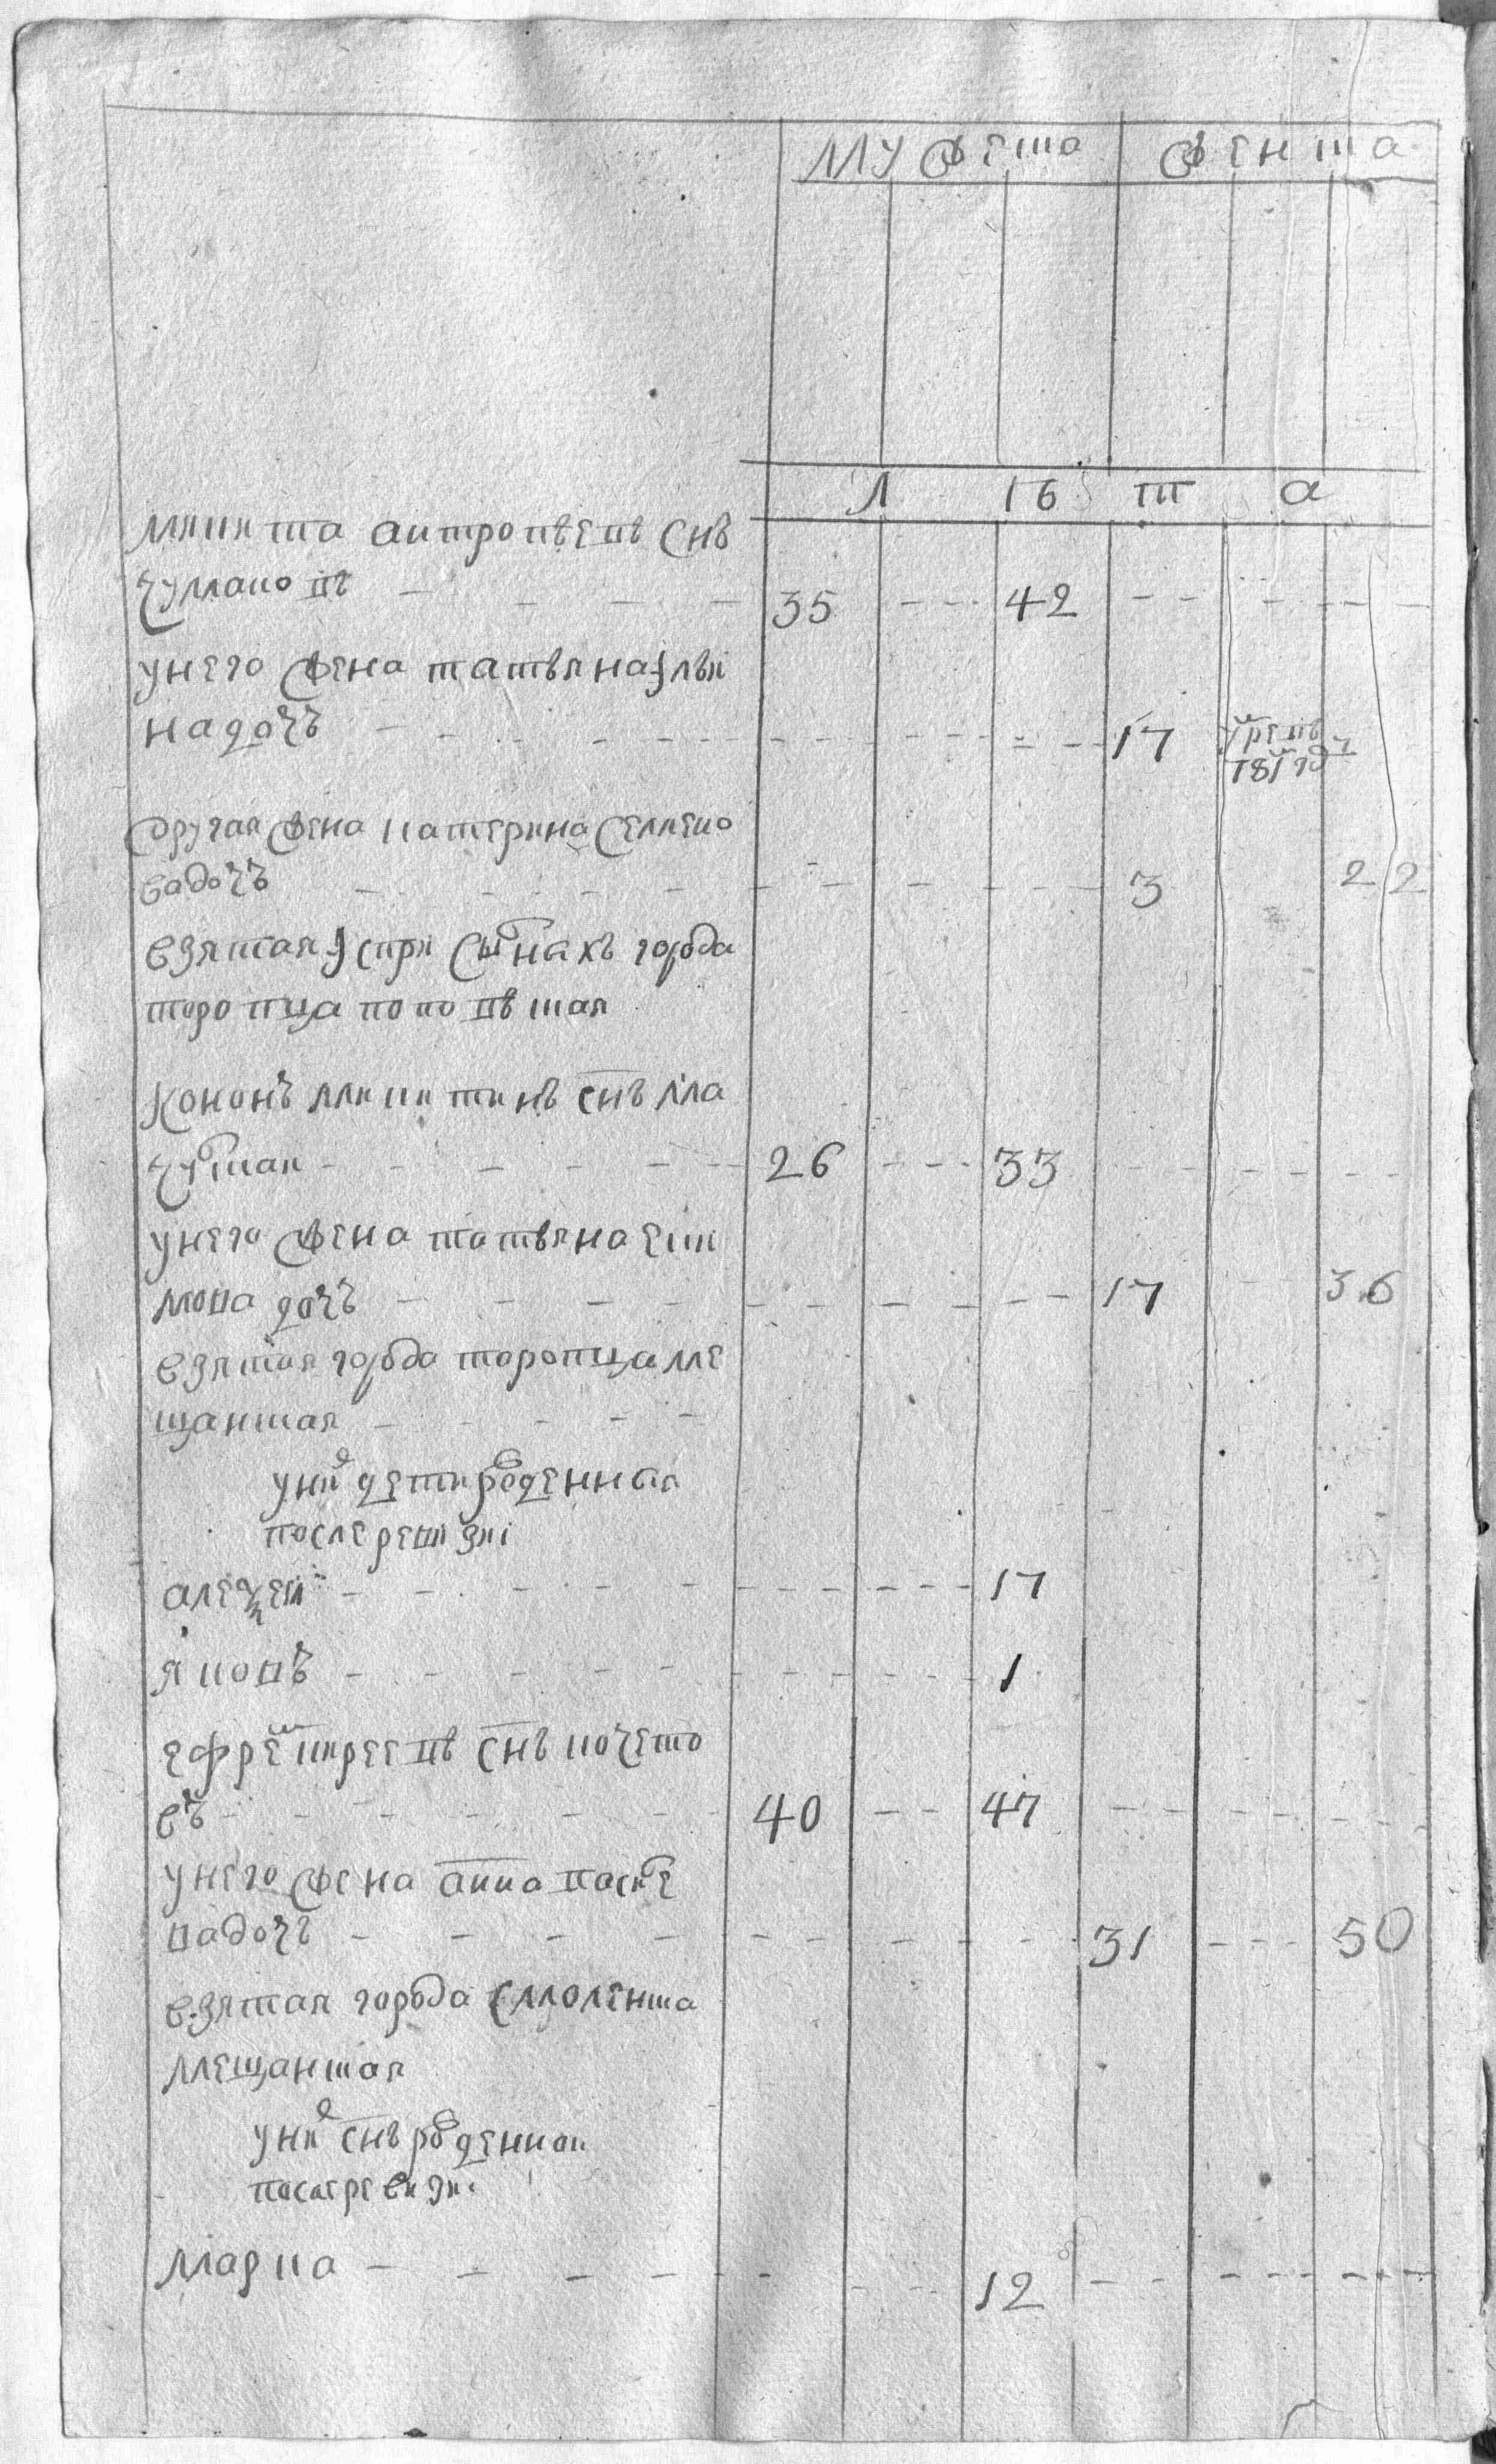 мужеска женска
л ѣ т а
микита антропъевъ снъ
чумаковъ 35 42
унего жена татьяна
надочъ 17
другая жена катерина семено
вадочъ 3 22
взятая города
торопца поповъская
кононъ микитинъ снъ
26 33
унего жена татьяна еки
мова дочъ 17 36
взятая города торопца ме
щанская
уних детирожденныя
послеревизиі
алеѯей 17
яковъ 1
ефрем киреевъ снъ кочето
въ 40 47
унего жена анна
вадочъ 31 50
взятая города смоленска
мещанская
уних снърожденнои
послеревизи
марка 12